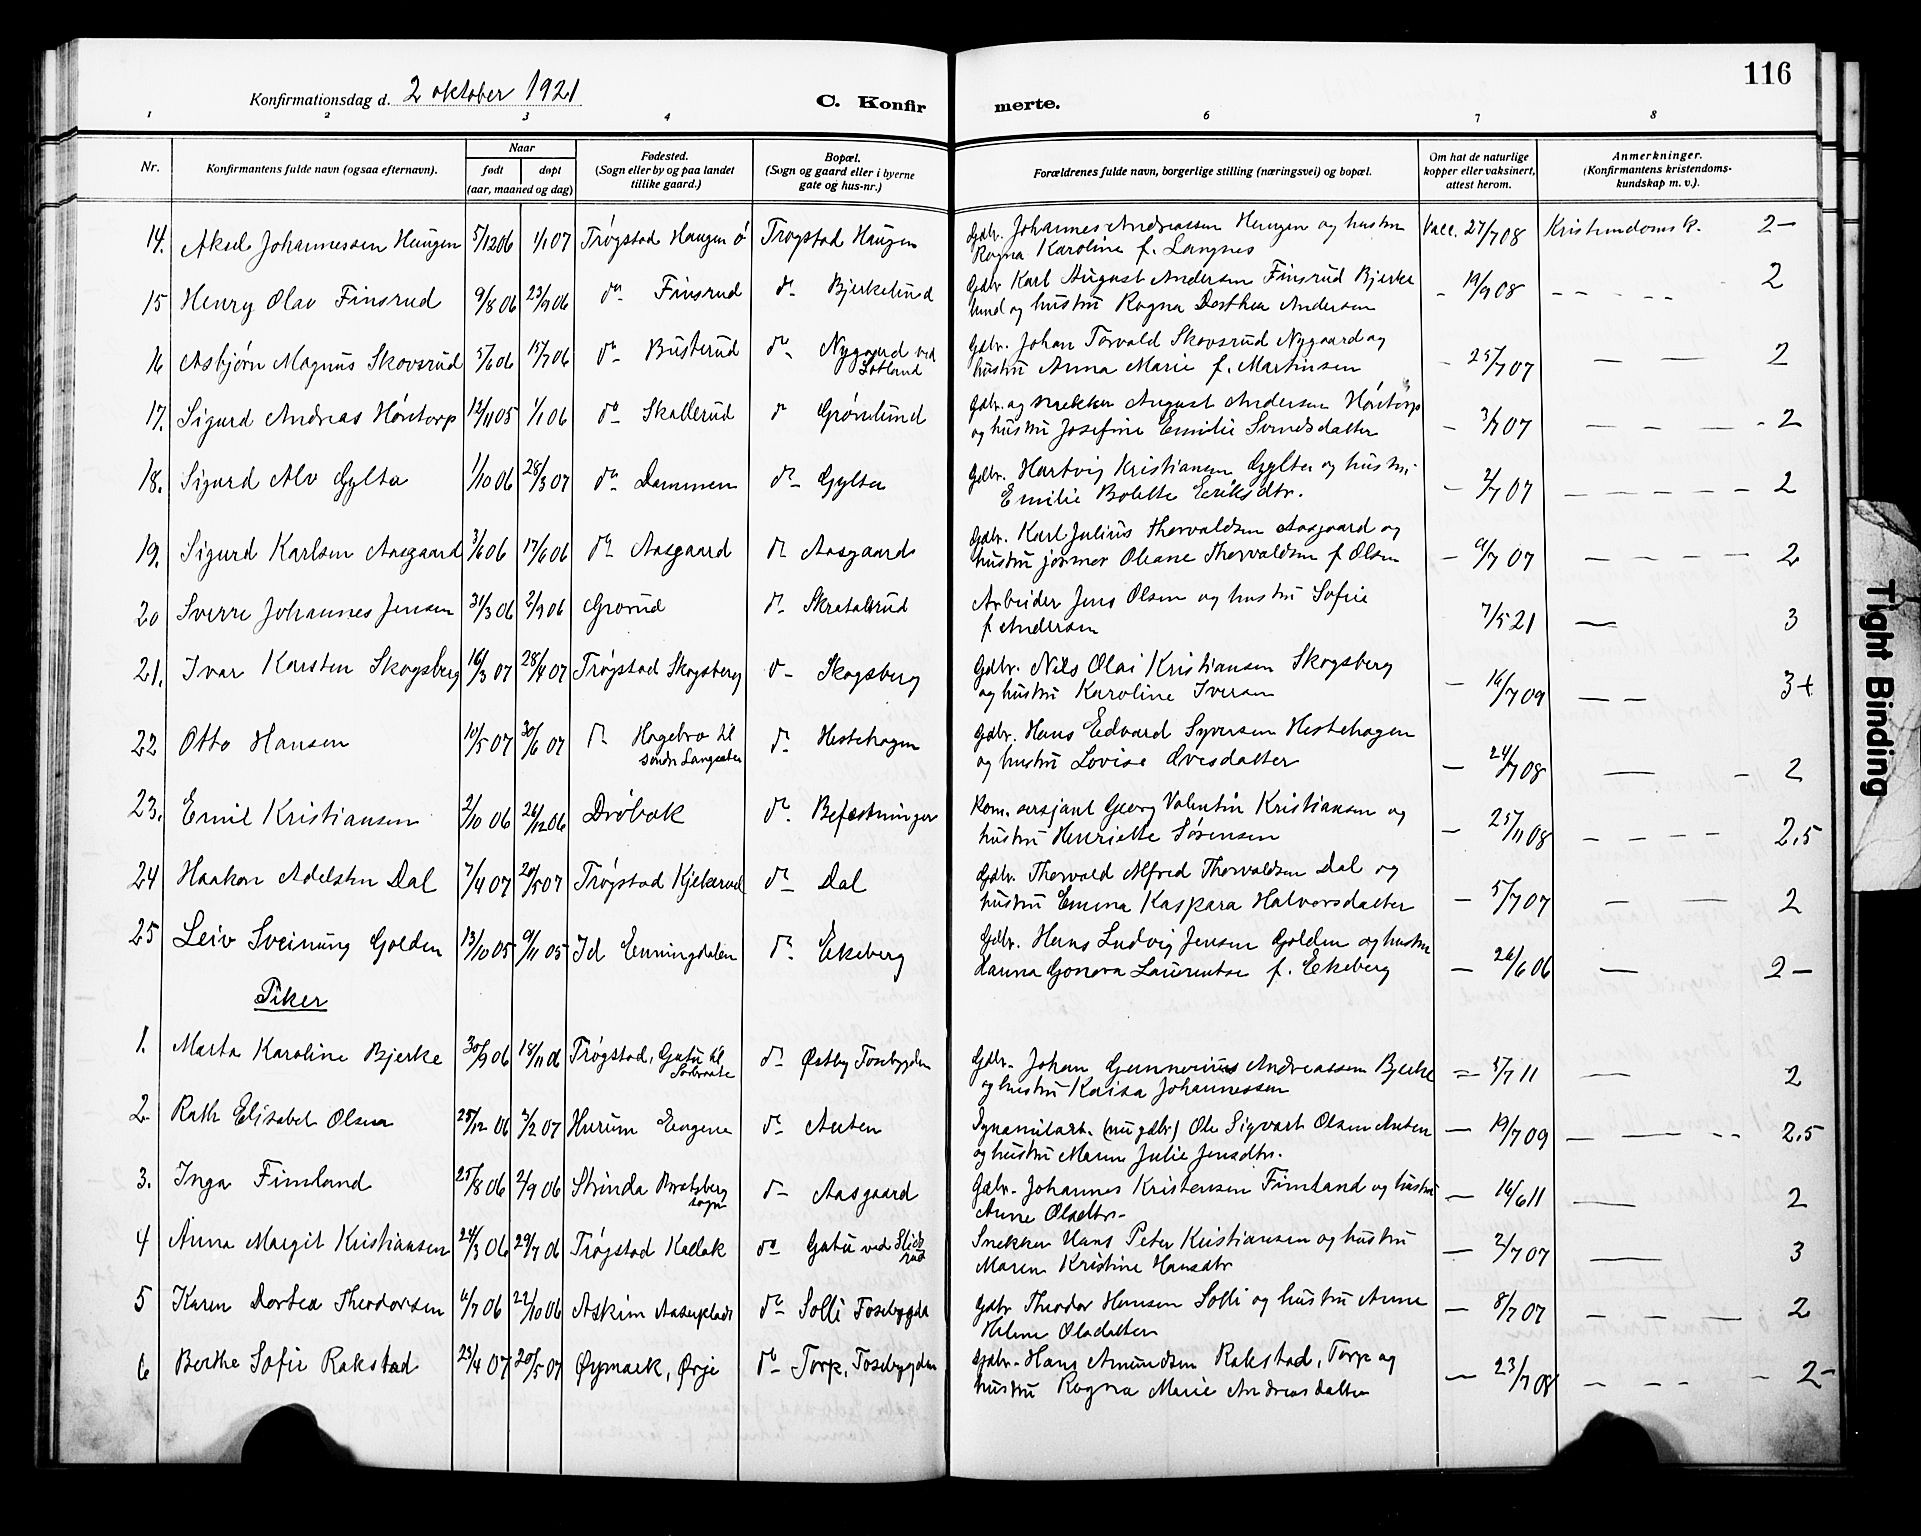 116
Konfirmationsdag d. 2 oktober 1921
C. Konfir merte.
1 2 3 4 6 7 8
Nr. Konfirmantens fulde navn (ogsaa efternavn). Naar født døpt (aar, maaned og dag) Fødested. (Sogn eller by og paa landet tillike gaard.) Bopæl. (Sogn og gaard eller i byerne gate og hus-nr.) Forældrenes fulde navn, borgerlige stilling (næringsvei) og bopæl. Om hat de naturlige kopper eller vaksinert, attest herom. Anmerkninger. (Konfirmantens kristendoms-kundskap m. v.).
14. Aksel Johannessen Haugen 5/12 06 1/1 07 Trøgstad Haugen ø Trøgstad Haugen Gdbr. Johannes Andreassen Haugen og hustru Vacc. 27/7 08 Kristendomsk. 2-
Ragna Karoline f. Langnes
15 Henry Olav Finsrud 9/8 06 23/9 06 do Finsrud do Bjerkelund Gdbr Karl August Andersen Finsrud Bjerke - 19/9 08 2
lund og hustru Ragna Dorthea Andersen
16 Asbjørn Magnus Skovsrud 5/6 06 15/7 06 do Busterud do Nygaard ved Gdbr. Johan Torvald Skovsrud Nygaard og - 25/7 07 2
hustru Anna Marie f. Martinsen
17. Sigurd Andreas Høntorp 12/11 05 1/1 06 do Skallerud do Grønlund Gdbr. og snekker August Andersen Høntorp - 3/7 07 2
og hustru Josefine Emilie Svendsdatter
18. Sigurd Alv Gylta 1/10 06 28/3 07 do Dammen do Gylta Gdbr. Hartvig Kristiansen Gylta og hustru - 2/7 07 2
Emilie Bolette Eriksdtr.
19. Sigurd Karlsen Aasgaard 3/6 06 17/6 06 do Aasgaard do Aasgaard Gdbr. Karl Julius Thorvaldsen Aasgaard og - 9/7 07 2
hustru jormor Oleane Thorvaldsen f Olsen
20 Sverre Johannes Jensen 31/3 06 2/9 06 Grorud do Skratalsrud Arbeider Jens Olsen og hustru Sofie 7/5 21 3
f Andersen
21. Ivar Karsten Skogsberg 16/3 07 28/4 07 Trøgstad Skogsberg do Skogsberg Gdbr. Nils Olai Kristiansen Skogsberg - 16/7 09 3+
og hustru Karoline Iversen
22 Otto Hansen 10/5 07 30/6 07 do Hagebro til do Hestehagen Gdbr. Hans Edvard Syversen Hestehagen - 24/7 08 2
søndre Langsæter og hustru Lovise Ovesdatter
23. Emil Kristiansen 2/10 06 26/12 06 Drøbak do Befæstningen Kom. sersjant Georg Valentin Kristiansen og - 25/11 08 2,5
hustru Henriette Sørensen
24 Haakon Adelsten Dal 7/4 07 20/5 07 Trøgstad Kjekerud do Dal Gdbr. Thorvald Alfred Thorvaldsen Dal og - 5/7 07 2
hustru Emma Kaspara Halvorsdatter
25 Leiv Sveinung Golden 13/10 05 9/11 05 Id Enningdalen do Ekeberg Gdbr. Hans Ludvig Jensen Golden og hustru - 26/6 06 2-
Hanna Gonora Laurentse f. Ekeberg
Piker
1. Marta Karoline Bjerke 30/9 06 18/11 06 Trøgstad, Gatu til do Østby Fosebygden Gdbr. Johan Gunnerius Andreassen Bjerke = 5/7 11 2
og hustru Kaisa Johannessen
2 Ruth Elisabet Olsen 25/12 06 3/2 07 Hurum Engene do Auten Dynamitarb. (nu gdbr) Ole Sigvart Olsen Auten - 19/7 09 2,5
og hustru Maren Julie Jensdtr.
3. Inga Fimland 25/8 06 2/9 06 Strinda Bratsberg do Aasgaard Gdbr. Johannes Kristensen Fimland og hustru - 16/6 11 2
sogn Anne Olsdtr.
4 Anna Margit Kristiansen 24/3 06 29/7 06 Trøgstad Kallak do Gatu ved Snekker Hans Peter Kristiansen og hustru - 2/7 07 3
Maren Kristine Hansdtr
5 Karen Dortea Theodorsen 6/7 06 22/10 06 Askim do Solli Fosebygda Gdbr Theodor Hansen Solli og hustru Anne - 8/7 07 2
Helene Olsdatter
6 Berthe Sofie Rakstad 23/4 07 20/5 07 Øymark, Ørje do Torp, Fosebygden Gdbr. Hans Amundsen Rakstad, Torp og - 23/7 08 2-
hustru Ragna Marie Andreasdatter
Tight Binding